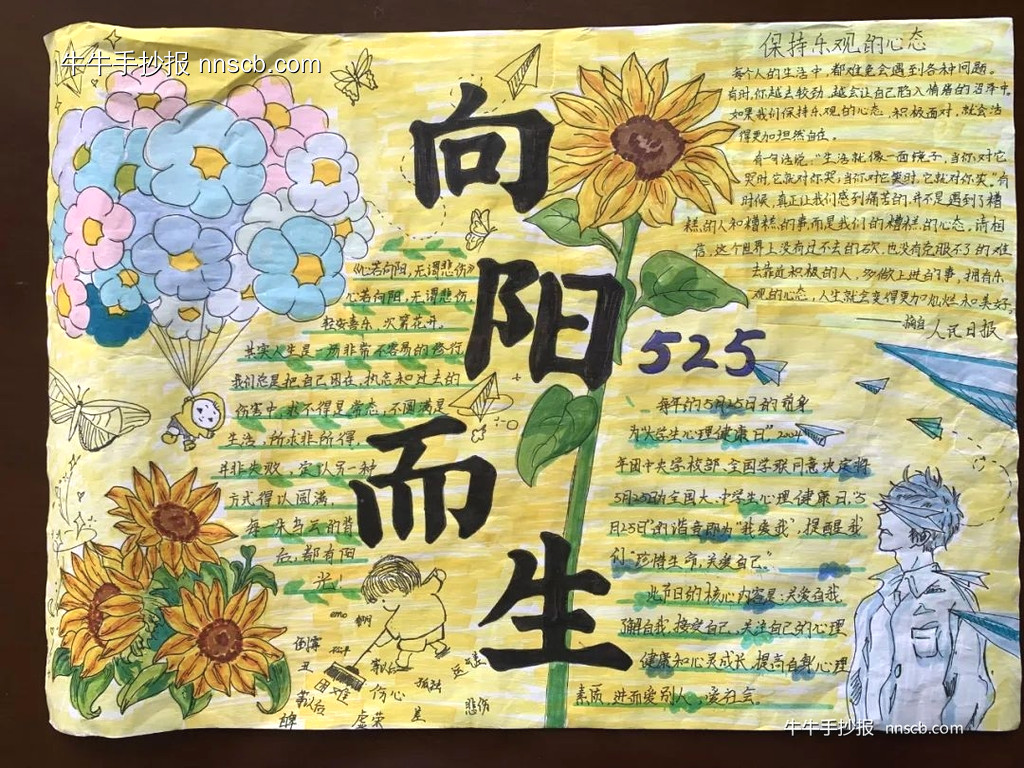 牛牛手抄报 nnscb.com
向阳而生
保持乐观的心态
每个人的生活中，都难免会遇到各种问题。
有时，你越去较劲，越会让自己陷入情绪的沼泽中。
如果我们保持乐观的心态，积极面对，就会活
得更加坦然自在。
有句话说，"生活就像一面镜子，当你对它
哭时，它就对你哭；当你对它笑时，它就对你笑。有
时候，真正让我们感到痛苦的，并不是遇到了糟
糕的人和糟糕的事，而是我们的糟糕的心态，请相
信，这个世界上没有过不去的坎，也没有克服不了的难
去靠近积极的人，多做上进的事，拥有乐
观的心态，人生就会变得更加灿烂和美好。
——摘自人民日报
《心若向阳，无谓悲伤》
心若向阳，无谓悲伤，
轻安喜乐，次第花开。
其实人生是一场非常不容易的修行，
我们总是把自己困在，执念和过去的
伤害中，求不得是常态，不圆满是
生活，所求非所得，
并非失败，定以另一种
方式得以圆满，
每一朵乌云的背
后，都有阳
光！
525
每年的5月25日的前身
为"大学生心理健康日"2004
年团中央学校部、全国学联同意决定将
5月25日为全国大、中学生心理健康日，"5
月25日"的谐音即为"我爱我"，提醒我
们"珍惜生命，关爱自己。"
此节日的核心内容是：关爱自我，
了解自我，接受自己，关注自己的心理
健康和心灵成长，提高自身心理
素质，进而爱别人，爱社会。
emo
倒霉
丑
困难
伤心
孤独
虚荣
差
悲伤
牛牛手抄报 nnscb.com